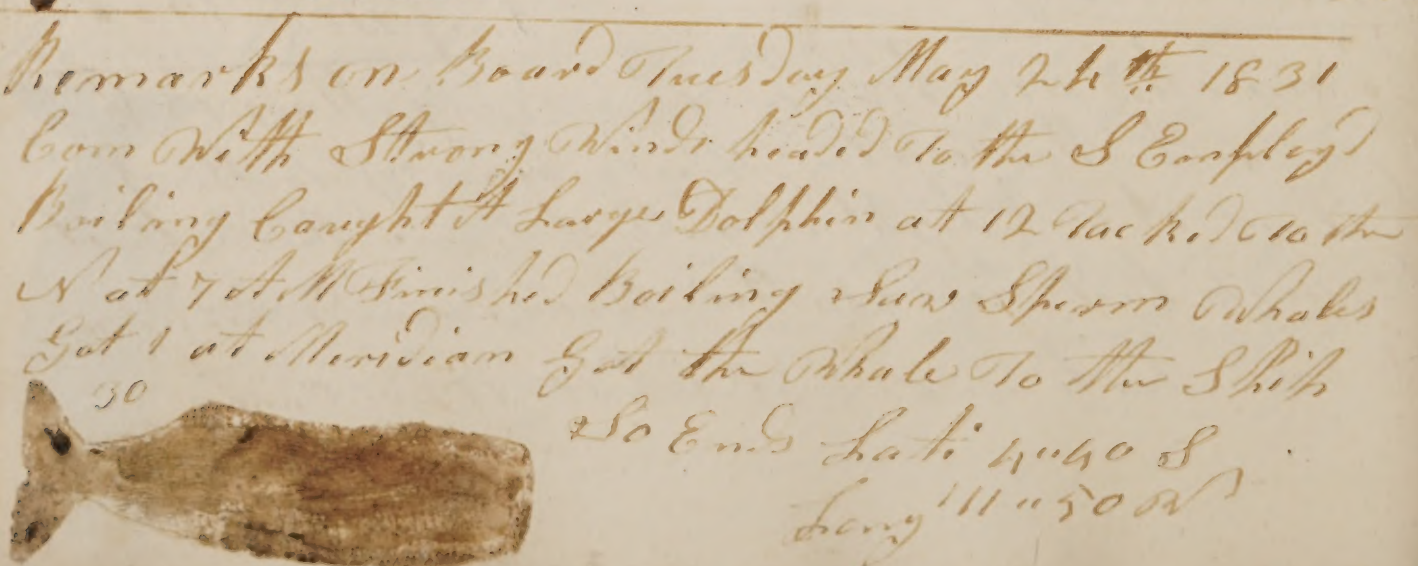 Remarks on Board Tuesday May 24th 1831
Com With Strong Winds headed To the S Employd
Boiling Caught A Large Dolphin at 12 Tacked To the
N at 7 A M Finished Boiling Saw Sperm Whales
Got 1 at Meridian Got the Whale To the Ship
30
So Ends Lati 4"40 S
Long 111"50 W